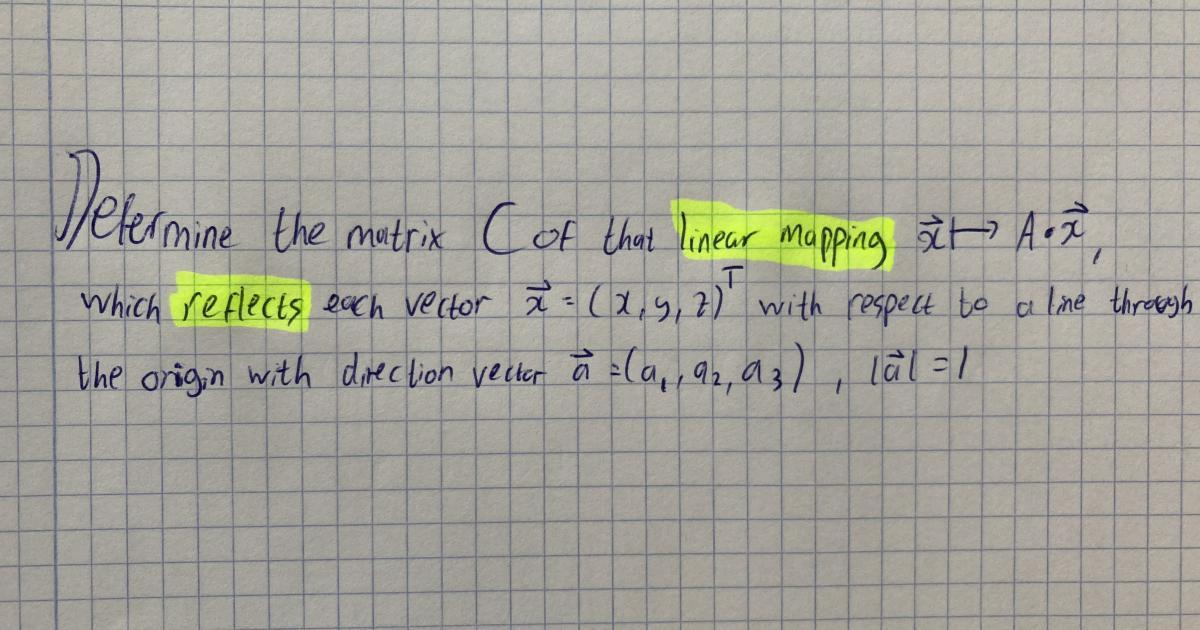 Determine the matrix C of that linear mapping x⃗ ↦ A·x⃗,
which reflects each vector x⃗ = (x, y, z)ᵀ with respect to a line through
the origin with direction vector a⃗ = (a₁, a₂, a₃), |a⃗| = 1